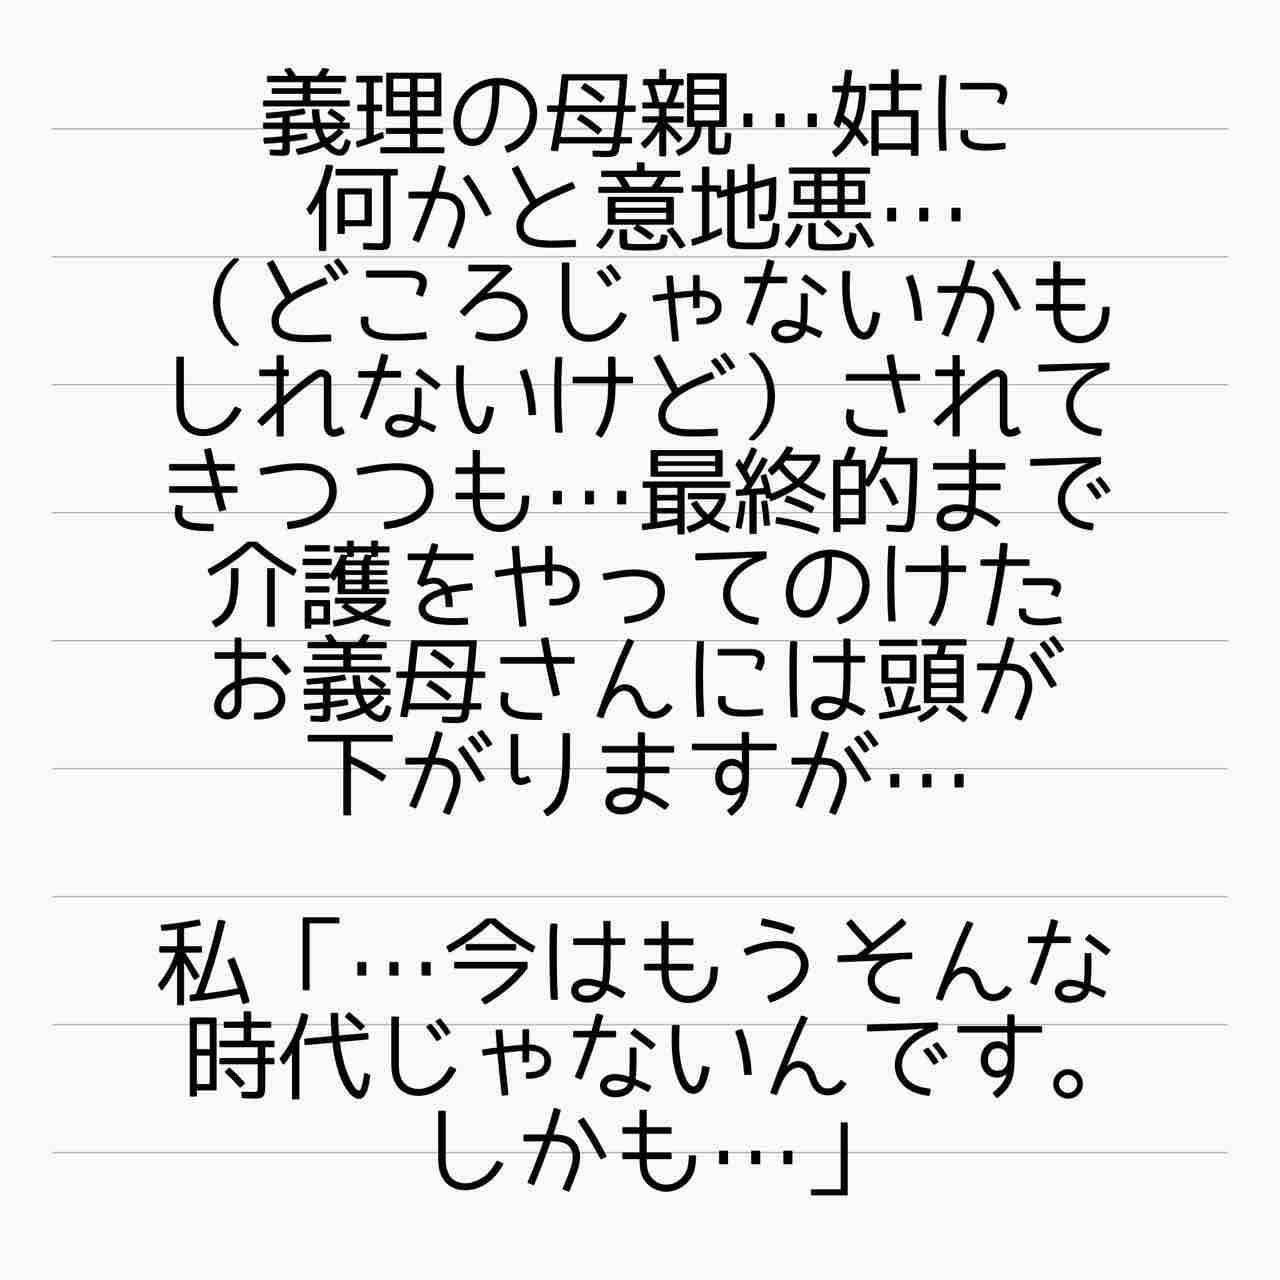 義理の母親…姑に
何かと意地悪…
（どころじゃないかも
しれないけど）されて
きつつも…最終的まで
介護をやってのけた
お義母さんには頭が
下がりますが…
私「…今はもうそんな
時代じゃないんです。
しかも…」